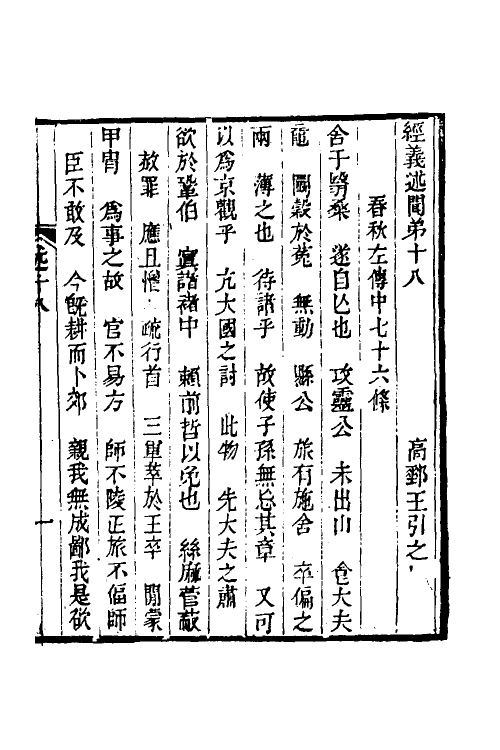 經義述聞弟十八　高郵王引之
春秋左傳中七十六條
舍于翳桑　遂自亡也　攻靈公　未出山　倉大夫
黿　鬬穀於菟　無動　縣公　旅有施舍　卒偏之
兩　薄之也　待諸乎　故使子孫無忘其章　又可
以爲京觀乎　亢大國之討　此物　先大夫之肅
欲於鞏伯　寘諸褚中　賴前哲以免也　絲麻菅蔽
赦罪　應且憎　疏行首　三軍萃於王卒　閒蒙
甲冑　爲事之故　官不易方　師不陵正旅不偪師
臣不敢及　今旣耕而卜郊　親我無成鄙我是欲
卷十八
一